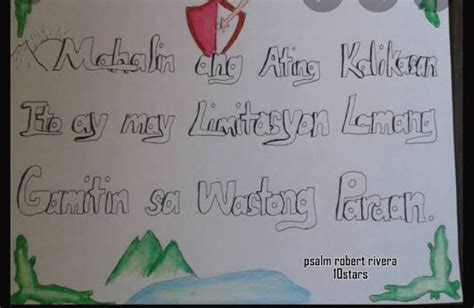 Mahalin ang Ating Kalikasan
Ito ay may Limitasyon Lamang
Gamitin sa Wastong Paraan.
psalm robert rivera
10stars